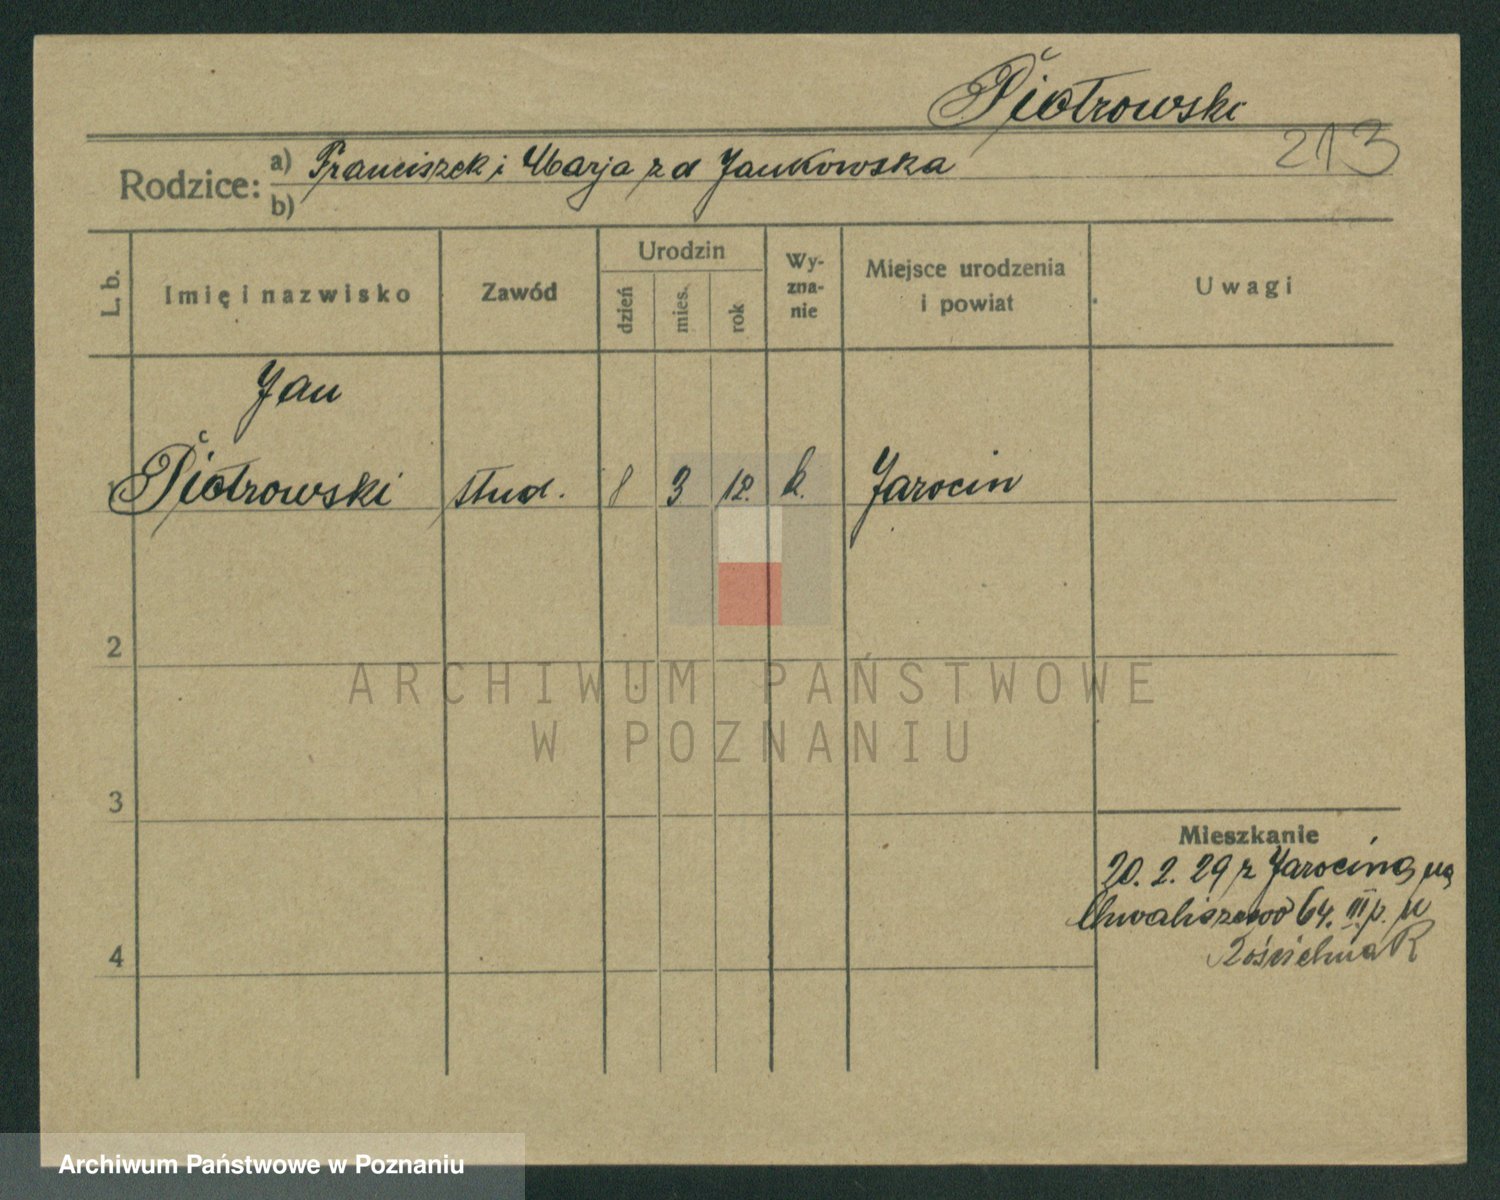 Piotrowski
213
Rodzice: a) Franciszek i Marja z d Jankowska
b)
L. b.
Imię i nazwisko
Zawód
Urodzin
dzień
mies.
rok
Wy-
zna-
nie
Miejsce urodzenia
i powiat
Uwagi
Jan
Piotrowski stud. 8 3 12. k. Jarocin
2
ARCHIWUM PAŃSTWOWE
W POZNANIU
3
Mieszkanie
20. 2. 29 z Jarocina na
Chwaliszewo 64. III p. u
4
Kościelniak
Archiwum Państwowe w Poznaniu